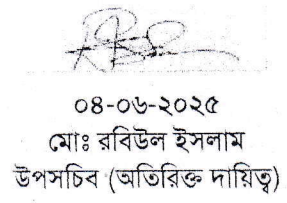 ০৪-০৬-২০২৫
মোঃ রবিউল ইসলাম
উপসচিব (অতিরিক্ত দায়িত্ব)